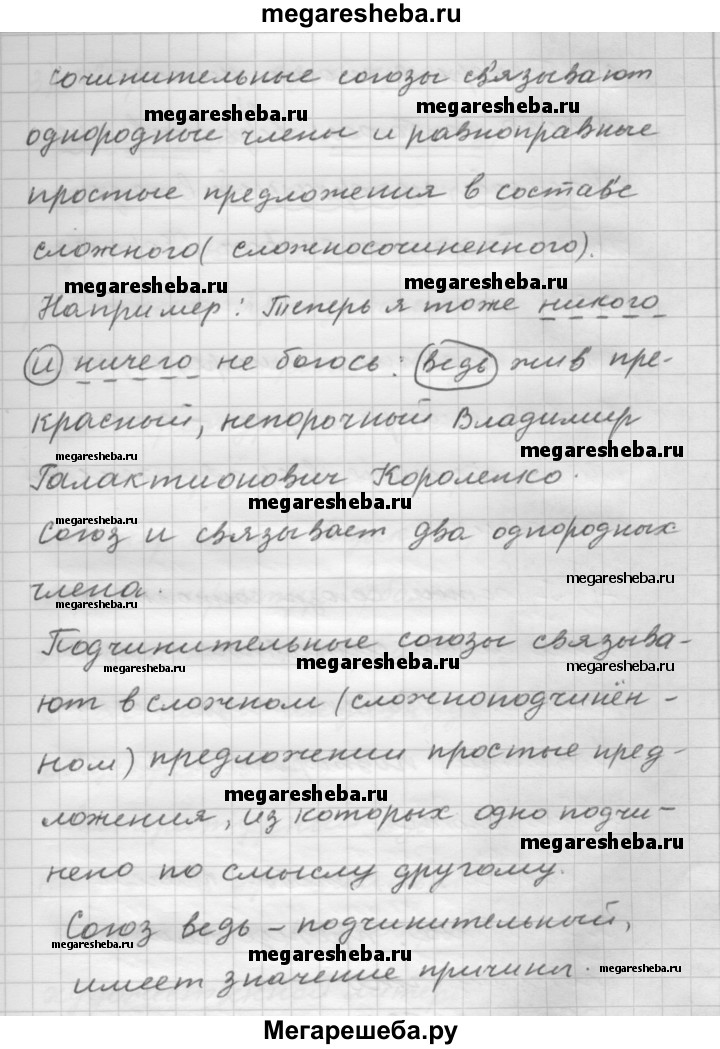 megaresheba.ru
сочинительные союзы связывают
megaresheba.ru megaresheba.ru
однородные члены и равноправные
простые предложения в составе
сложного( сложносочиненного).
megaresheba.ru megaresheba.ru
Например: Теперь я тоже никого
и ничего не боюсь: ведь жив пре-
красный, непорочный Владимир
megaresheba.ru megaresheba.ru
Галактионович Короленко.
megaresheba.ru megaresheba.ru
Союз и связывает два однородных
члена.
megaresheba.ru megaresheba.ru
Подчинительные союзы связыва-
megaresheba.ru megaresheba.ru megaresheba.ru
ют в сложном (сложноподчинён-
ном) предложении простые пред-
megaresheba.ru
ложения, из которых одно подчи-
megaresheba.ru
нено по смыслу другому.
Союз ведь – подчинительный,
megaresheba.ru megaresheba.ru megaresheba.ru
имеет значение причины.
Мегарешеба.ру